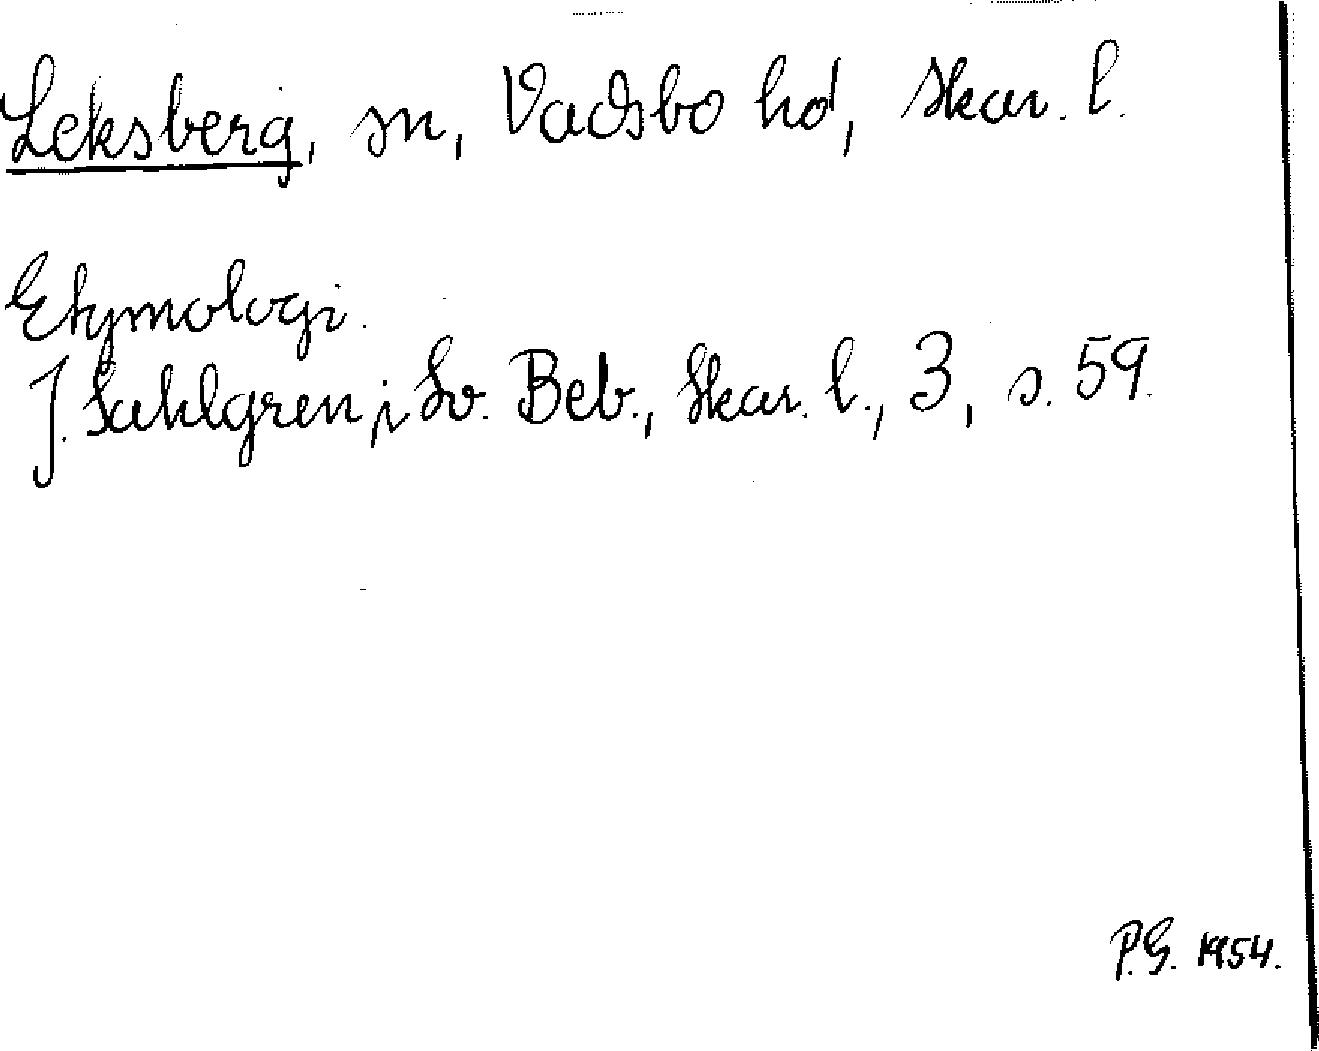 Leksberg, sn, Vadsbo hd, Skar. l.
Etymologi.
J. Sahlgren, i Sv. Beb., Skar. l., 3, s. 59.
P.G. 1954.